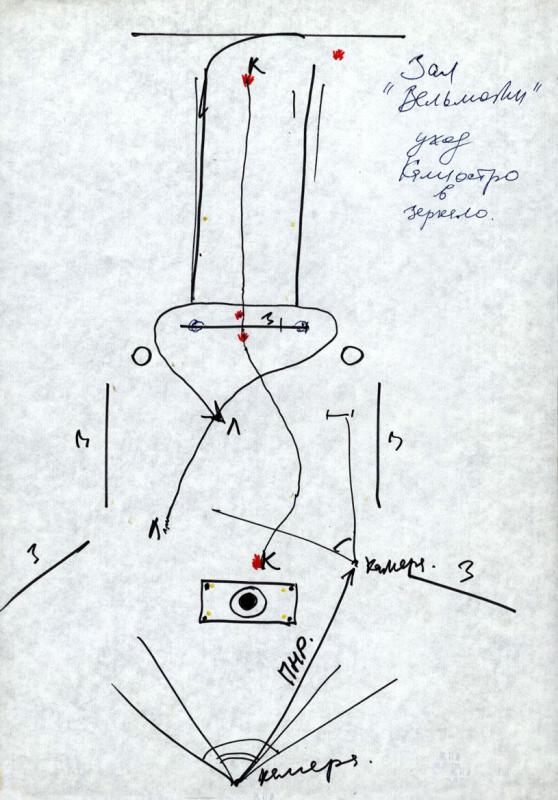 К
Зал
"Вельможи"
уход
Калиостро
в
зеркало.
З
Л
З
З
Л
З
К
камера.
З
ПНР.
камера.